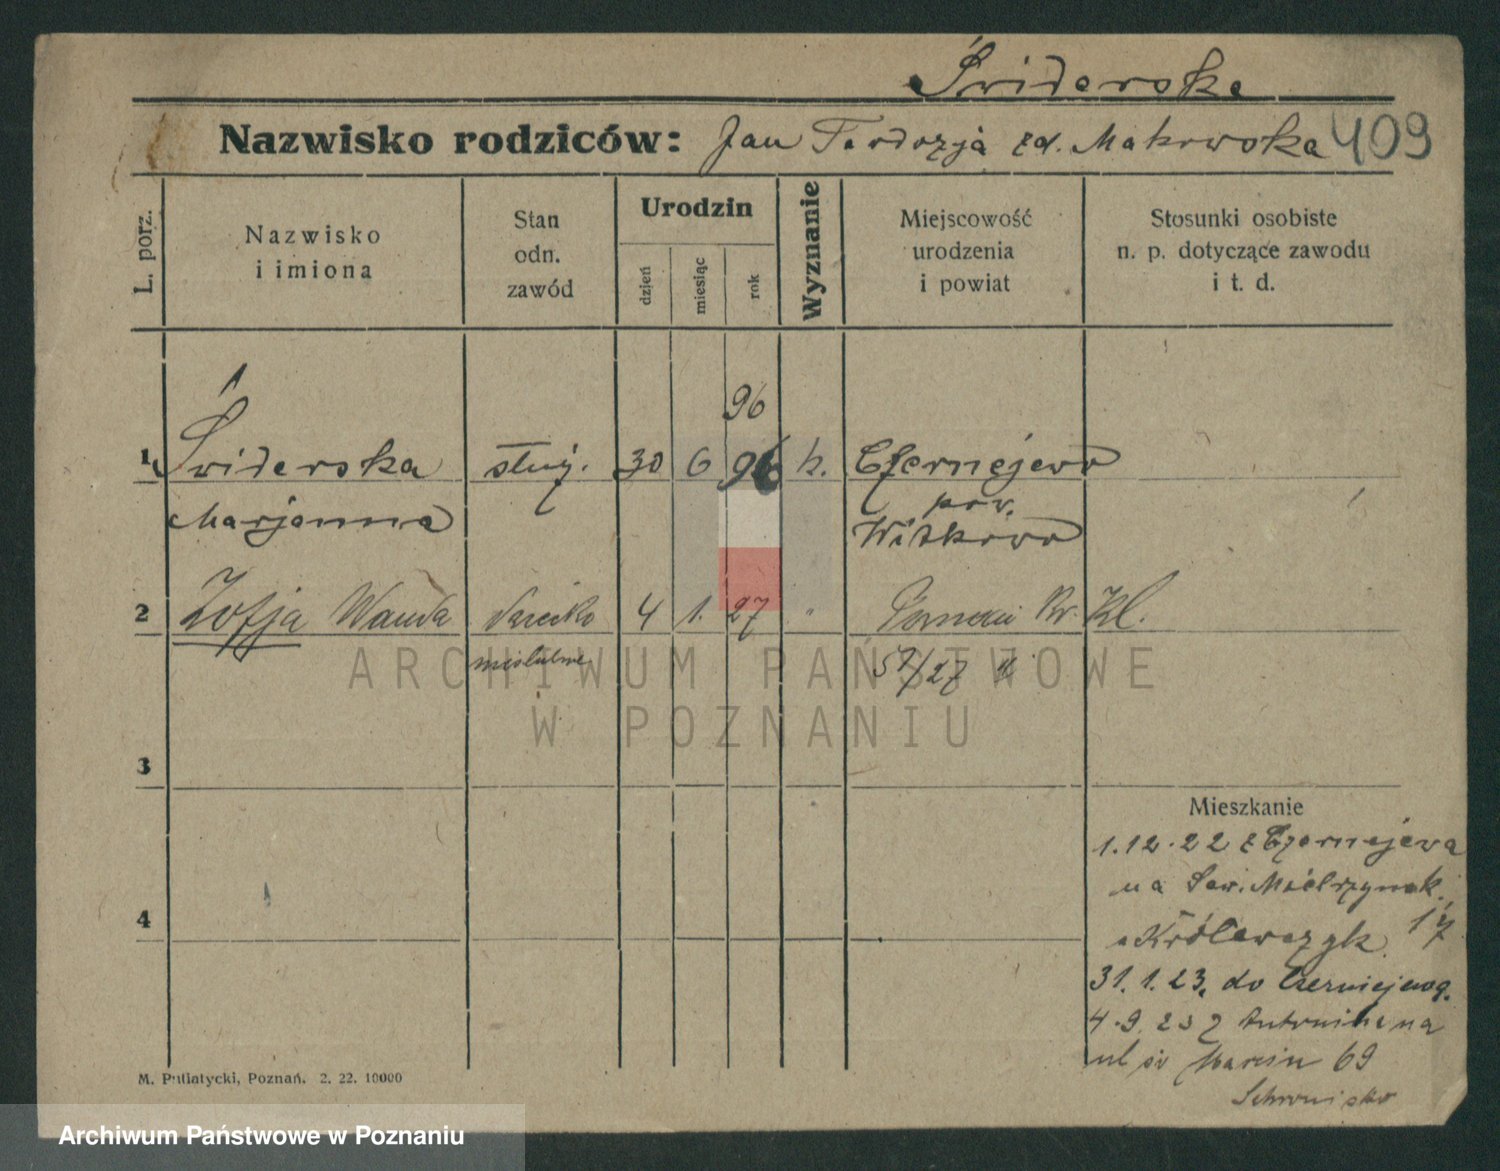 Świderska
Nazwisko rodziców: Jan Teodozja zd. Makowska 409
L. porz.
Nazwisko
i imiona
Stan
odn.
zawód
Urodzin
dzień
miesiąc
rok
Wyznanie
Miejscowość
urodzenia
i powiat
Stosunki osobiste
n. p. dotyczące zawodu
i t. d.
96
1 Świderska służ. 30 6 96 k. Czerniejewo
Marjanna pow.
Witkowo
2 Zofja Wanda 4 1. 27 " Poznań
57/27
ARCHIWUM PAŃSTWOWE
W POZNANIU
3
Mieszkanie
1.12.22 z Czerniejewa
na Sew. Mielżyńsk.
17
4
a Królewczyk
31.1.23. do Czerniejewa.
4.9.23 z Antonina na
ul św Marcin 69
Schronisko
M. Putiatycki, Poznań. 2. 22. 10000
Archiwum Państwowe w Poznaniu